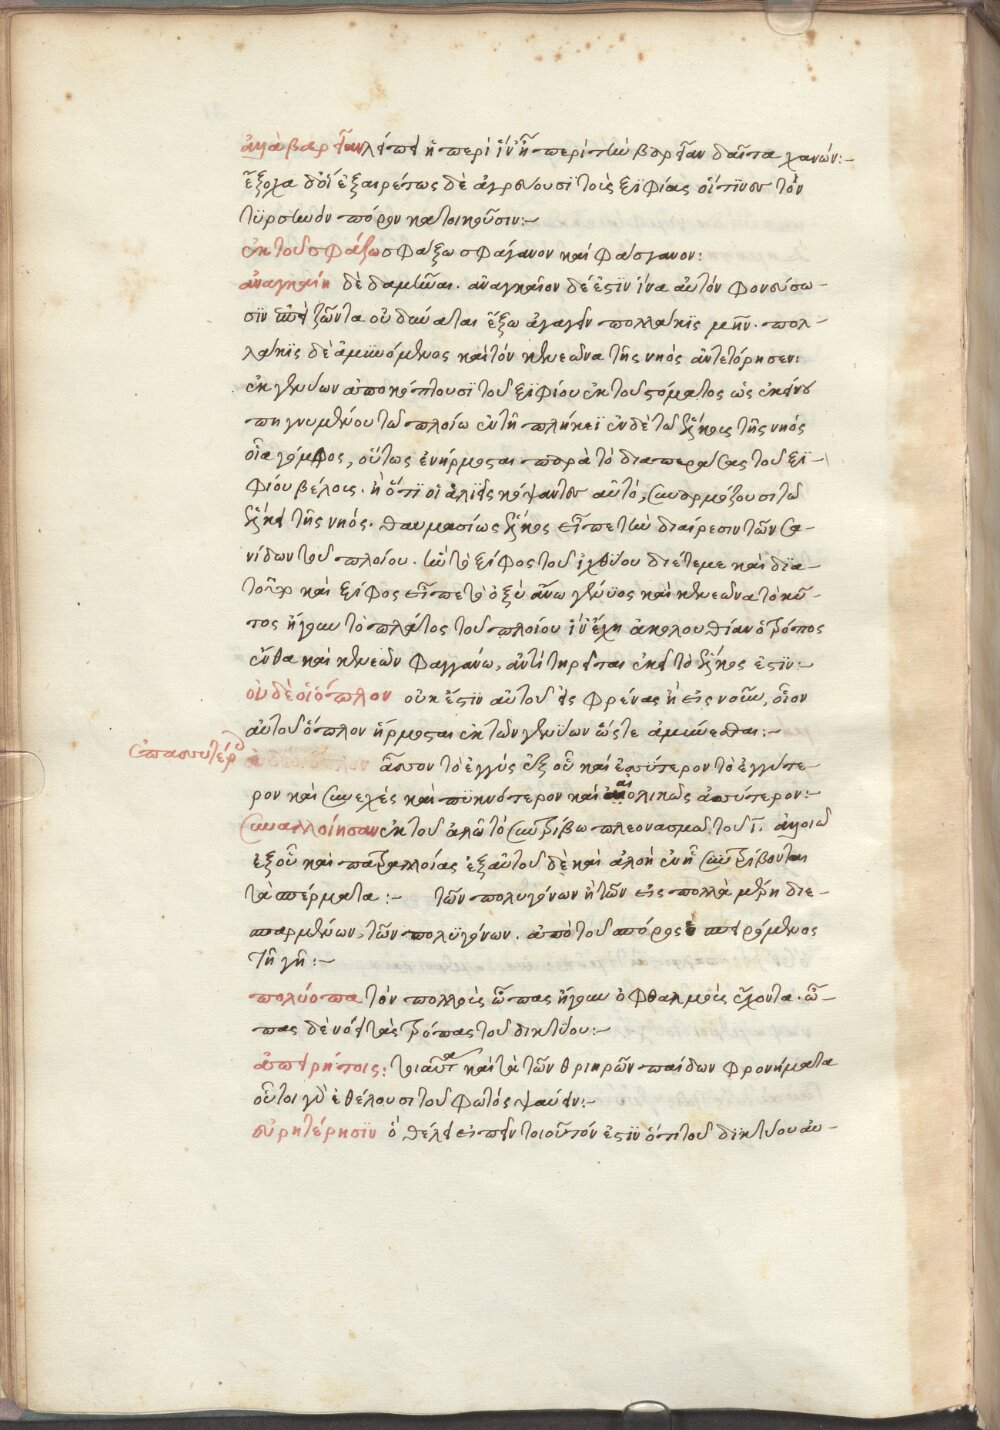 ἀμφὶ βορεῖαν λείπει ἡ περὶ ἵν' ᾖ περὶ τὴν βορεῖαν δαῖτα χανών:-
ἔξοχα δ' οἵ ἐξαιρέτως δὲ ἀγρεύουσι τοὺς ξιφίας οἵτινες τὸν
τυρσηνὸν πόρον κατοικοῦσιν:-
ἐκ τοῦ σφάξω σφάξω σφάγανον καὶ φάσγανον:
ἀναγκαίη δὲ δαμῆναι. ἀναγκαῖον δέ ἐστιν ἵνα αὐτόν φονεύσω-
σιν ζῶντα οὐ δύναται ἔξω ἀγαγεῖν πολλάκις μὴν. πολ-
λάκις δὲ ἀμυνόμενος καὶ τόν κενεῶνα τῆς νηός ἀντετόρησεν:
ἐκ γενύων ἀποκόπτουσι τοῦ ξιφίου ἐκ τοῦ στόματος ὡς ἐκείνου
πηγνυμένου τῶ πλοίω ἐν τῆ πλήκει ἐν δὲ τῶ ξίφει τῆς νηός
οἷα γόμφος, οὕτως ἐνήρμοσται παρὰ τὸ διαπερᾶσαι τοῦ ξι-
φίου βέλος. ἢ ὅτι οἱ ἁλιεῖς κόψαντες αὐτὸ, συναρμόζουσι τῶ
ξίφει τῆς νηός. θαυμασίως ξίφος εἶπε τὴν διαίρεσιν τῶν σα-
νίδων τοῦ πλοίου. ἣν τὸ ξίφος τοῦ ἰχθύου διέτεμε καὶ δια-
τορ καὶ ξίφος εἶπε τὸ ὀξὺ ἄνω γένυος καὶ κενεῶνα τὸ κῦ-
τος ἤγουν τὸ πλάτος τοῦ πλοίου ἵν' ἔχη ἀκολουθίαν ὁ τρόπος
ἔνθα καὶ κενεὼν φαγγάνω, ἀντὶ τηρεῖται ἐκεῖ τὸ ξίφος ἐστιν:-
οὐδέ οἱ ὅπλον οὐκ ἔστιν αὐτοῦ εἰς φρένας ἢ εἰς νοῦν, οἷον
αὐτοῦ ὅπλον ἥρμοσται ἐκ τῶν γενύων ὥστε ἀμύνεσθαι:-
ἐπασσυτέρ ἄσσον τὸ ἐγγύς ἐξ οὗ καὶ ἀσσύτερον τὸ ἐγγύτε-
ρον καὶ συνεχὲς καὶ πυκνότερον καὶ αἰολικῶς ἀσσύτερον:-
συναλλοίησαν ἐκ τοῦ ἀλῶ τὸ συντρίβω πλεονασμῶ τοῦ ι. ἀλοιῶ
ἐξ οὗ καὶ πατραλλοίας ἐξ αὐτοῦ δὲ καὶ ἀλοὴ ἐν ᾗ συντρίβονται
τὰ σπέρματα:- τῶν πολυγόνων ἢ τῶν εἰς πολλὰ μέρη διε-
σπαρμένων, τῶν πολυγόνων. ἀπὸ τοῦ σπόρος σπειρόμενος
τῆ γῆ:-
πολύοπα τὸν πολλοὺς ὦπας ἤγουν ὀφθαλμοὺς ἔχοντα. ὦ-
πας δὲ νόει τὰς τρόπας τοῦ δικτύου:-
ἀπειρήτοις: τοιαῦτα καὶ τὰ τῶν θριηρῶν παίδων φρονήματα
οὗτοι γὰρ ἐθέλουσι τοῦ φωτός ψαύειν:-
εὐρητέρησιν ὁ θέλει εἰπεῖν τοιοῦτόν ἐστιν ὅτι τοῦ δικτύου αὐ-